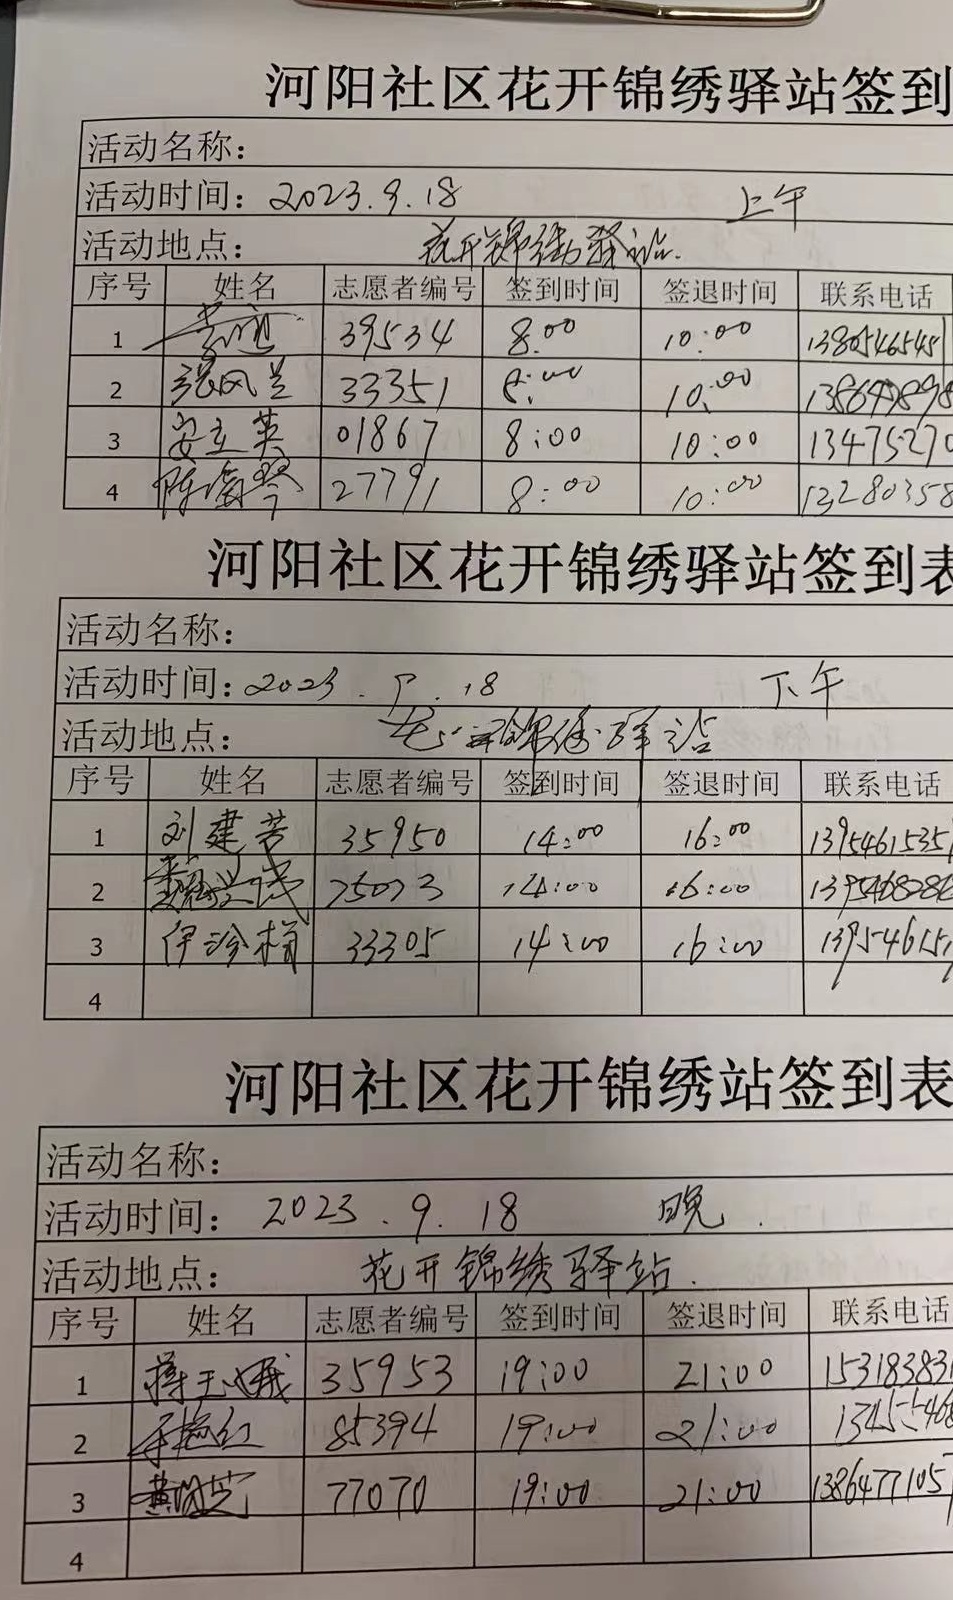 河阳社区花开锦绣驿站签到
活动名称：
活动时间：2023.9.18 上午
活动地点： 花开锦绣驿站.
序号 姓名 志愿者编号 签到时间 签退时间 联系电话
1 39534 8:00 10:00 1380546545
2 张风兰 33351 8:00 10:00
3 安立英 01867 8:00 10:00 13475270
4 27791 8:00 10:00 13280358
河阳社区花开锦绣驿站签到表
活动名称：
活动时间：2023.9.18 下午
活动地点： 花开锦绣驿站
序号 姓名 志愿者编号 签到时间 签退时间 联系电话
1 刘建芳 35950 14:00 16:00 1395461535
2 75073 14:00 16:00
3 33305 14:00 16:00 13954615
4
河阳社区花开锦绣站签到表
活动名称：
活动时间： 2023.9.18 晚.
活动地点： 花开锦绣驿站.
序号 姓名 志愿者编号 签到时间 签退时间 联系电话
1 蒋玉娥 35953 19:00 21:00 153183831
2 85394 19:00 21:00
3 77070 19:00 21:00 1386477105
4